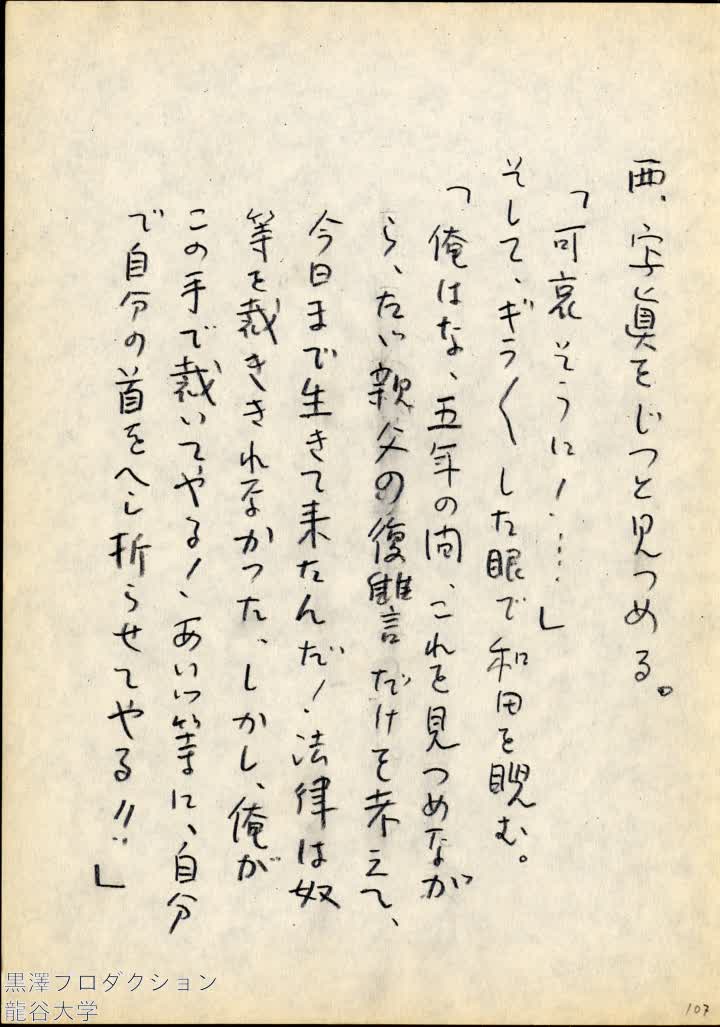 西、写眞をじつと見つめる。
「可哀そうに！……」
そして、ギラ〱した眼で和田を睨む。
「俺はな、五年の間、これを見つめなが
ら、たゞ親父の復讐だけを考えて、
今日まで生きて来たんだ！法律は奴
等を裁ききれなかった、しかし、俺が
この手で裁いてやる！、あいつ等に、自分
で自分の首をへし折らせてやる!!」
黒澤プロダクション
龍谷大学
107